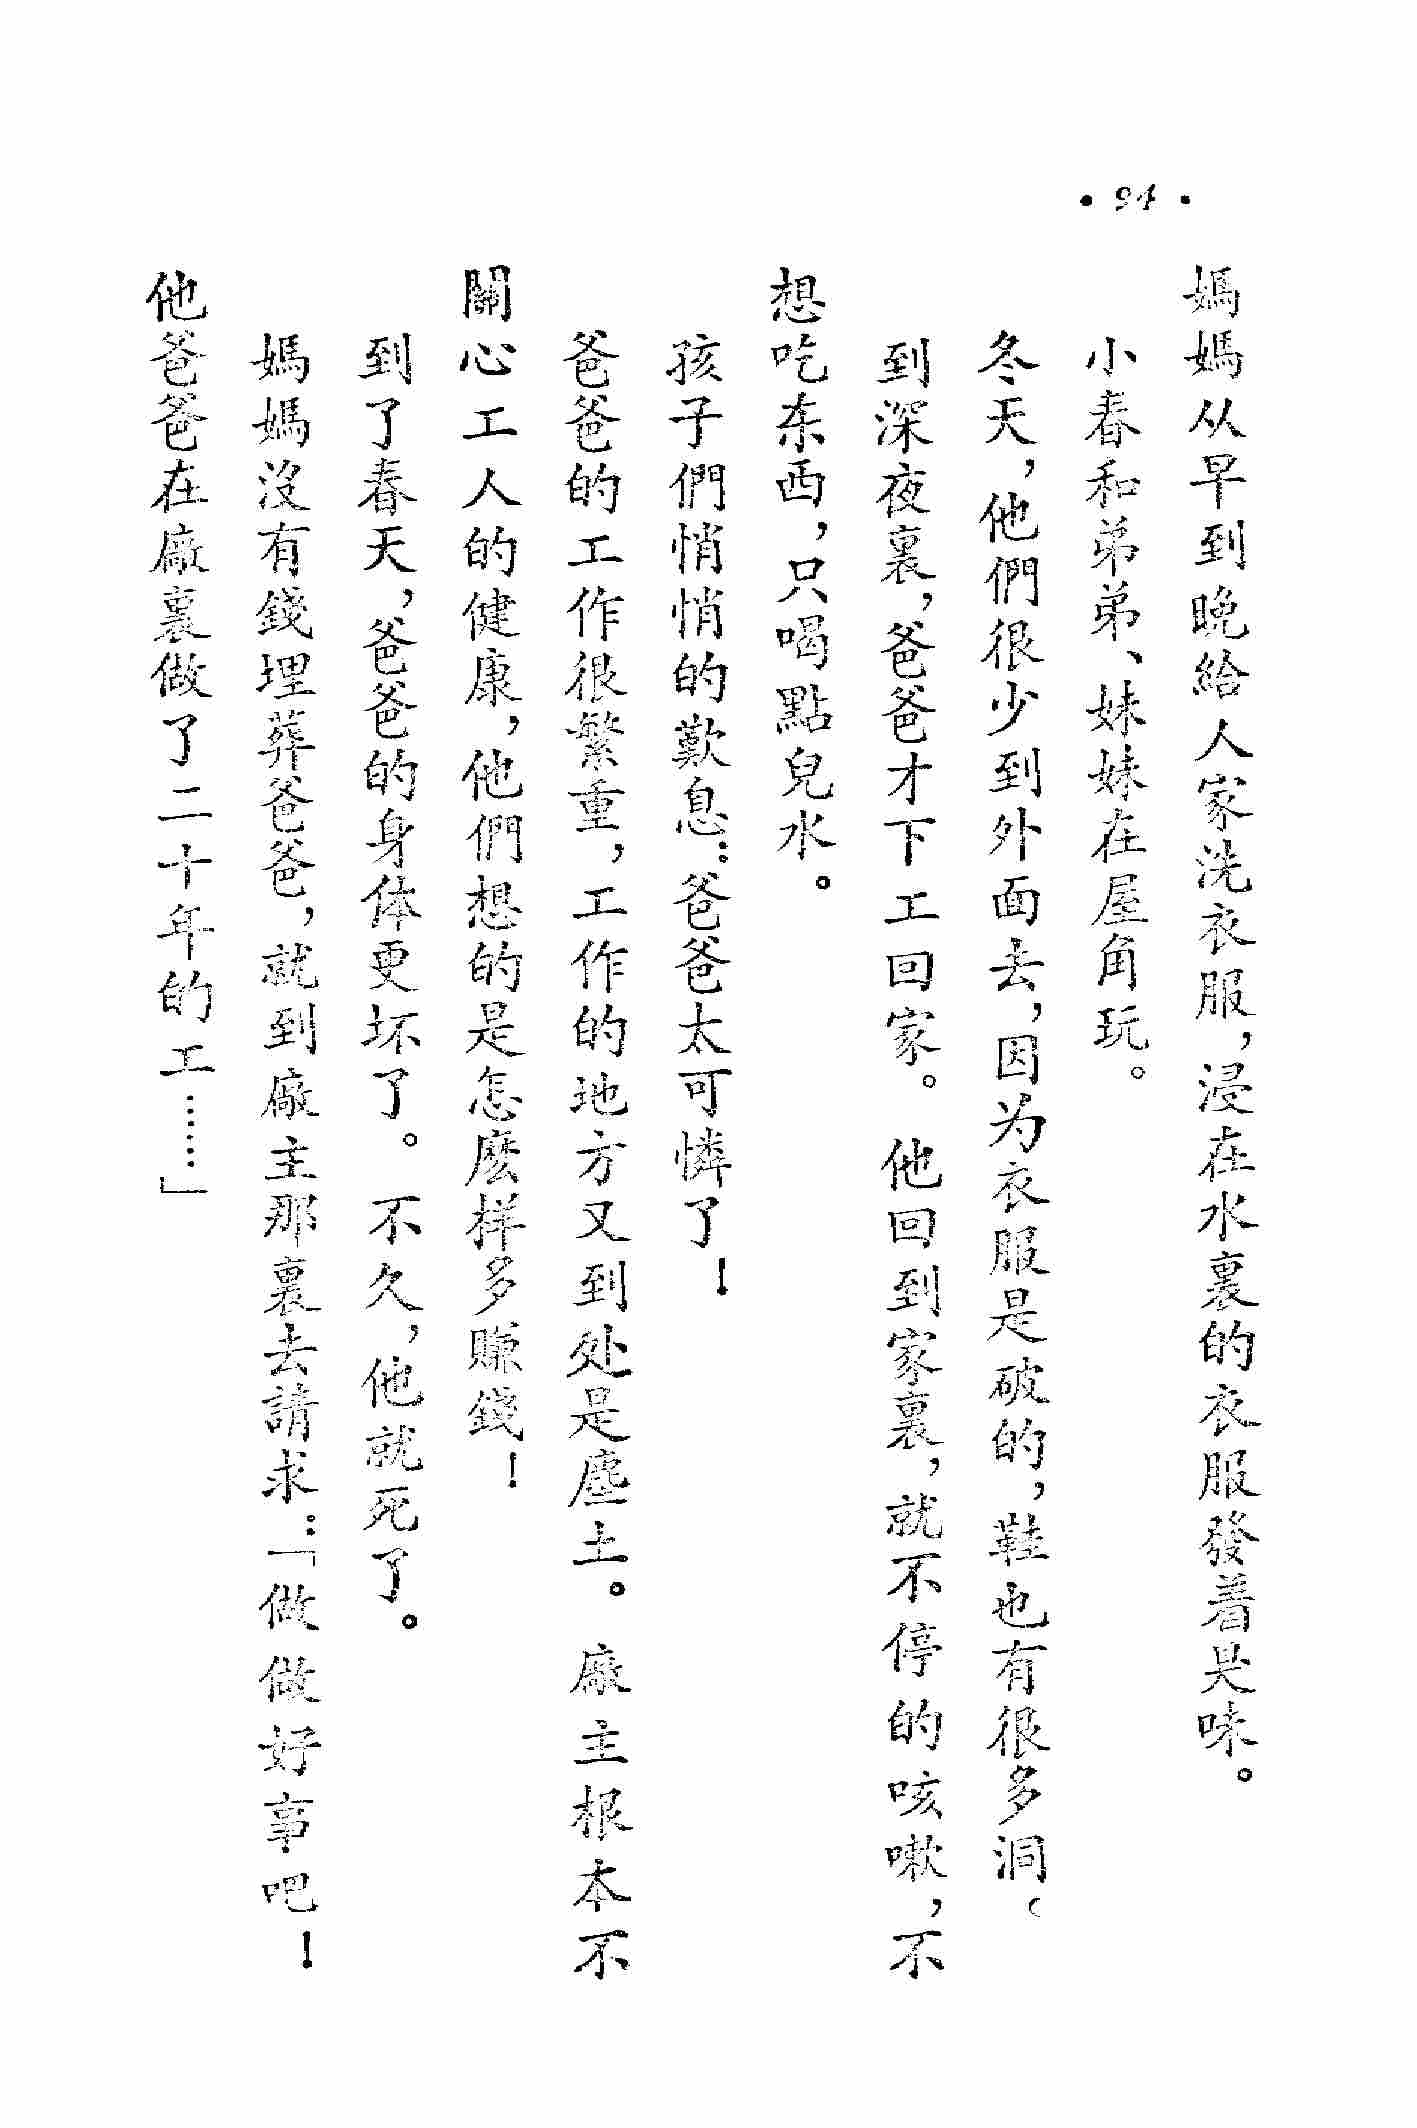 • 94 •
媽媽从早到晚給人家洗衣服，浸在水裏的衣服發着臭味。
小春和弟弟、妹妹在屋角玩。
冬天，他們很少到外面去，因为衣服是破的，鞋也有很多洞。
到深夜裏，爸爸才下工回家。他回到家裏，就不停的咳嗽，不
想吃东西，只喝點兒水。
孩子們悄悄的歎息：爸爸太可憐了！
爸爸的工作很繁重，工作的地方又到处是塵土。廠主根本不
關心工人的健康，他們想的是怎麽样多賺錢！
到了春天，爸爸的身体更坏了。不久，他就死了。
媽媽沒有錢埋葬爸爸，就到廠主那裏去請求：「做做好事吧！
他爸爸在廠裏做了二十年的工……」